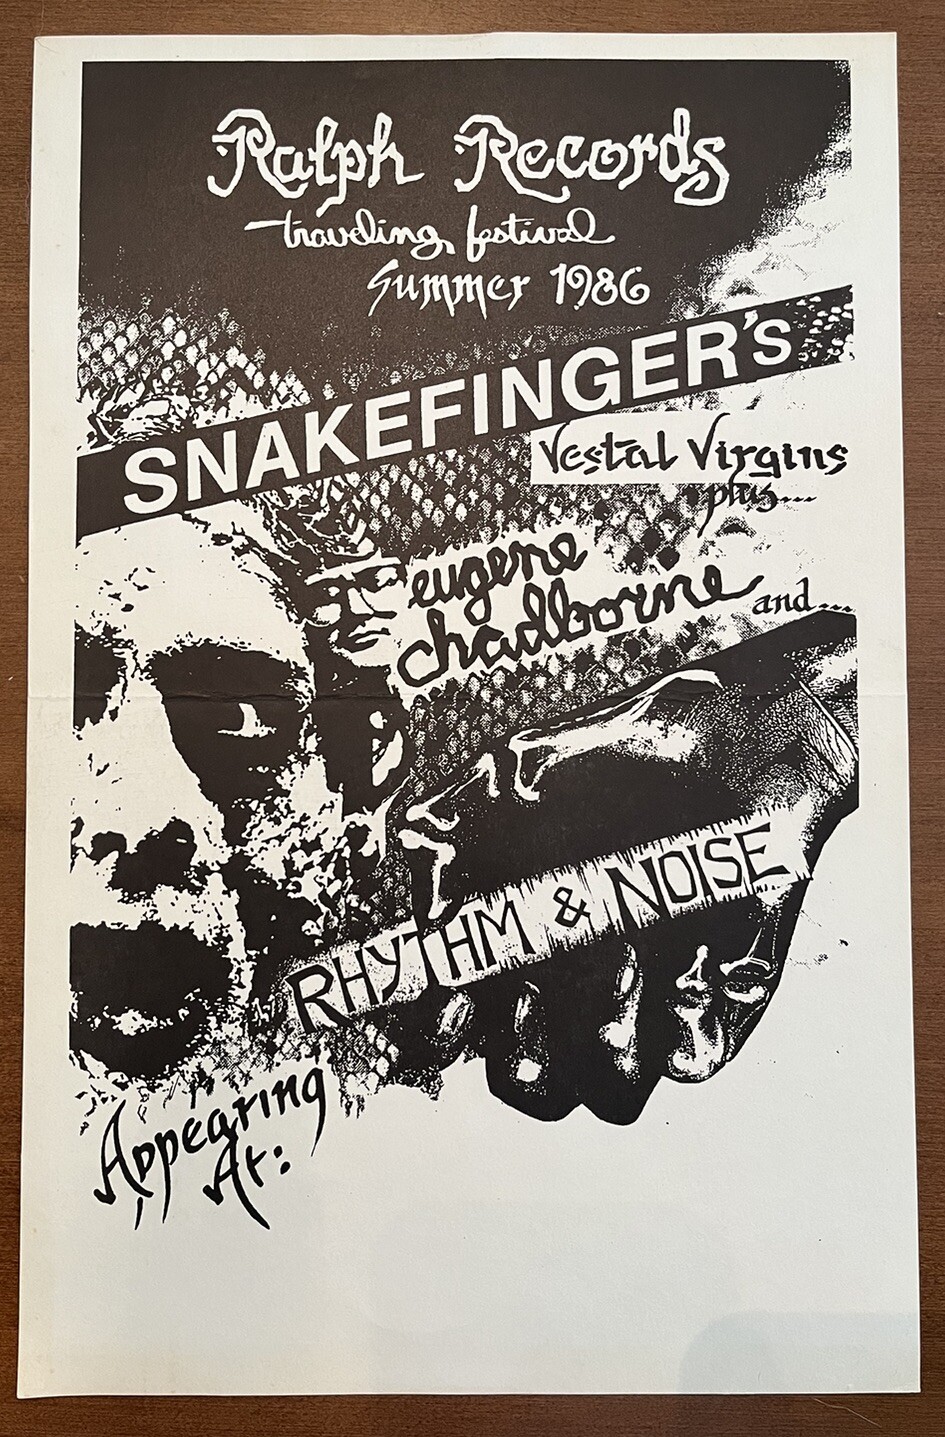 Ralph Records
traveling festival
Summer 1986
SNAKEFINGER'S
Vestal Virgins
plus...
eugene
chadborne and...
RHYTHM & NOISE
Appearing
At: